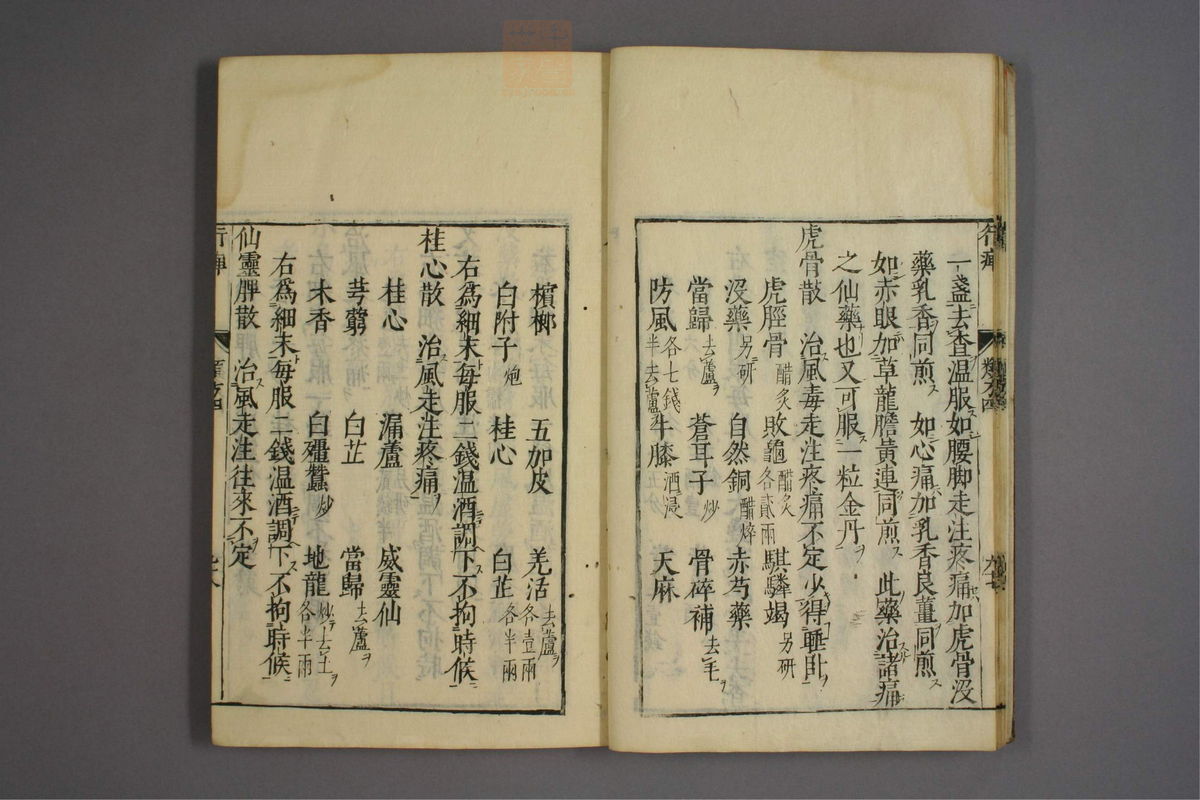 一盞去査温服如腰脚走注疼痛加虎骨沒
藥乳香同煎 如心痛加乳香良薑同煎
如赤眼加草龍膽黄連同煎 此藥治諸痛
之仙藥也又可服一粒金丹
虎骨散 治風毒走注疼痛不定少得睡卧
虎脛骨醋炙 敗龜醋炙各貳兩 騏驎竭另研
沒藥另研 自然銅醋焠 赤芍藥
當歸去蘆 蒼耳子炒 骨碎補去毛
防風各七錢半去蘆 牛膝酒浸 天麻
檳榔 五加皮 羌活去蘆各壹兩
白附子炮 桂心 白芷各半兩
右爲細末毎服二錢温酒調下不拘時候
桂心散 治風走注疼痛
桂心 漏蘆 威靈仙
芎藭 白芷 當歸去蘆
木香 白殭蠶炒 地龍炒去土各半兩
右爲細末毎服二錢温酒調下不拘時候
仙靈脾散 治風走注往來不定